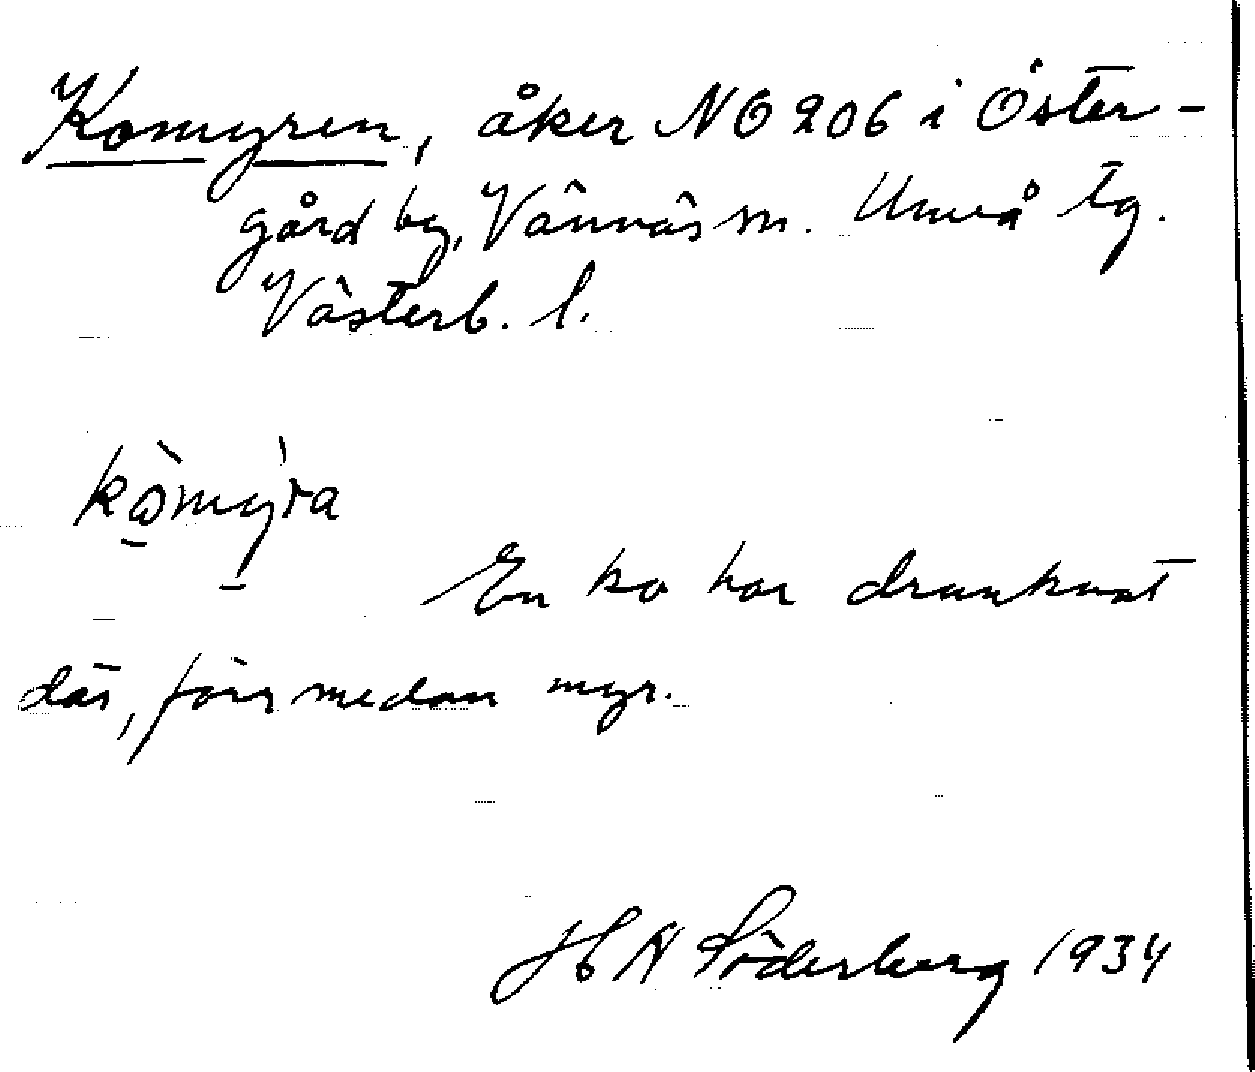 Komyren, åker NO 206 i Öster-
gård by, Vännäs sn. Umeå tg.
Västerb. l.
kò̱mỳ̱ra
En ko har drunknat
där, förr medan myr.
H N Söderberg 1934